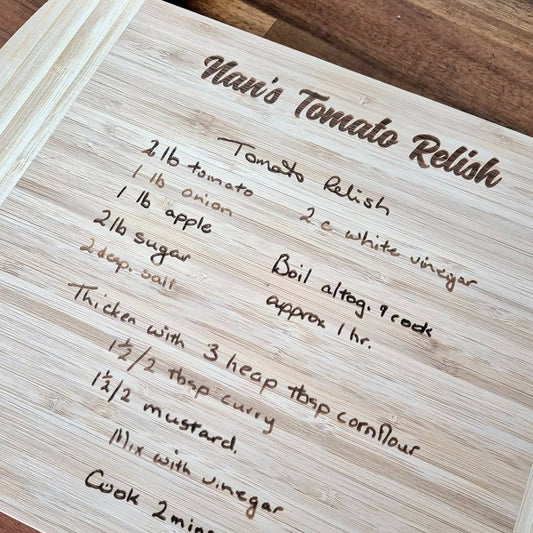 Nan's Tomato Relish
Tomato Relish
2 lb tomato
1 lb onion
1 lb apple
2 lb sugar
2 dsp. salt
2 c white vinegar
Boil altog. & cook
approx 1 hr.
Thicken with 3 heap tbsp cornflour
1½/2 tbsp curry
1½/2 mustard.
Mix with vinegar
Cook 2 mins